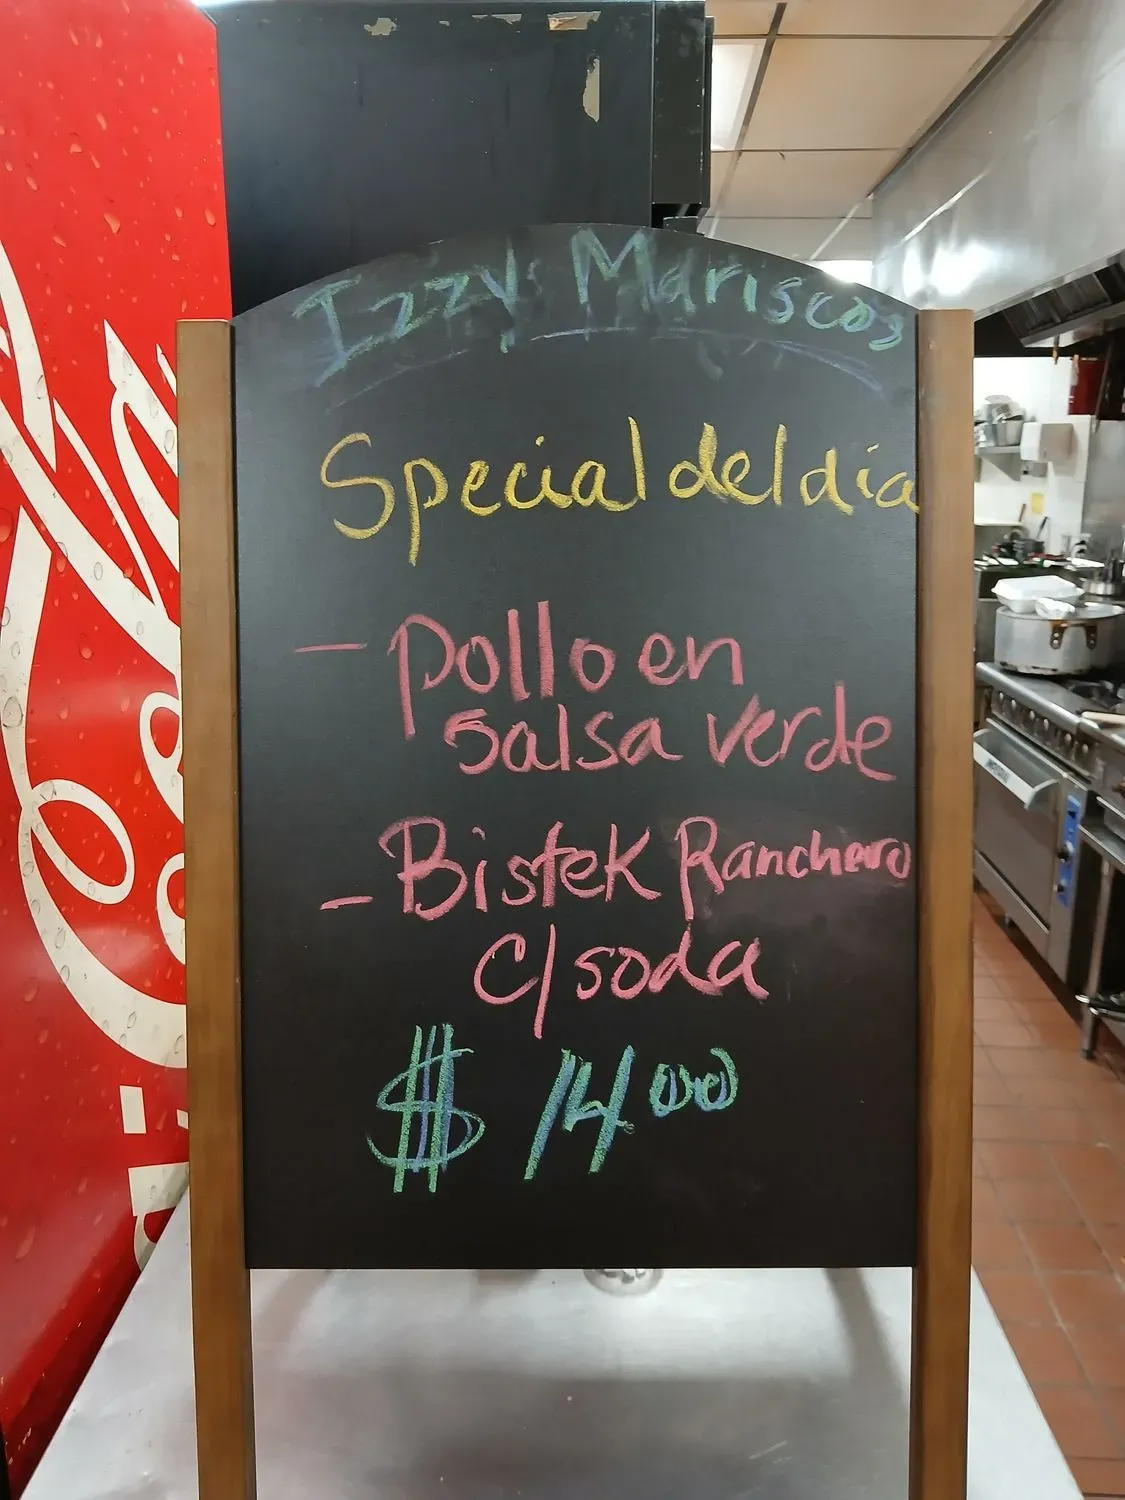 Izzy Mariscos
Special del dia
- Pollo en
salsa verde
- Bistek Ranchero
c/ soda
$ 14.00
Coca-Cola